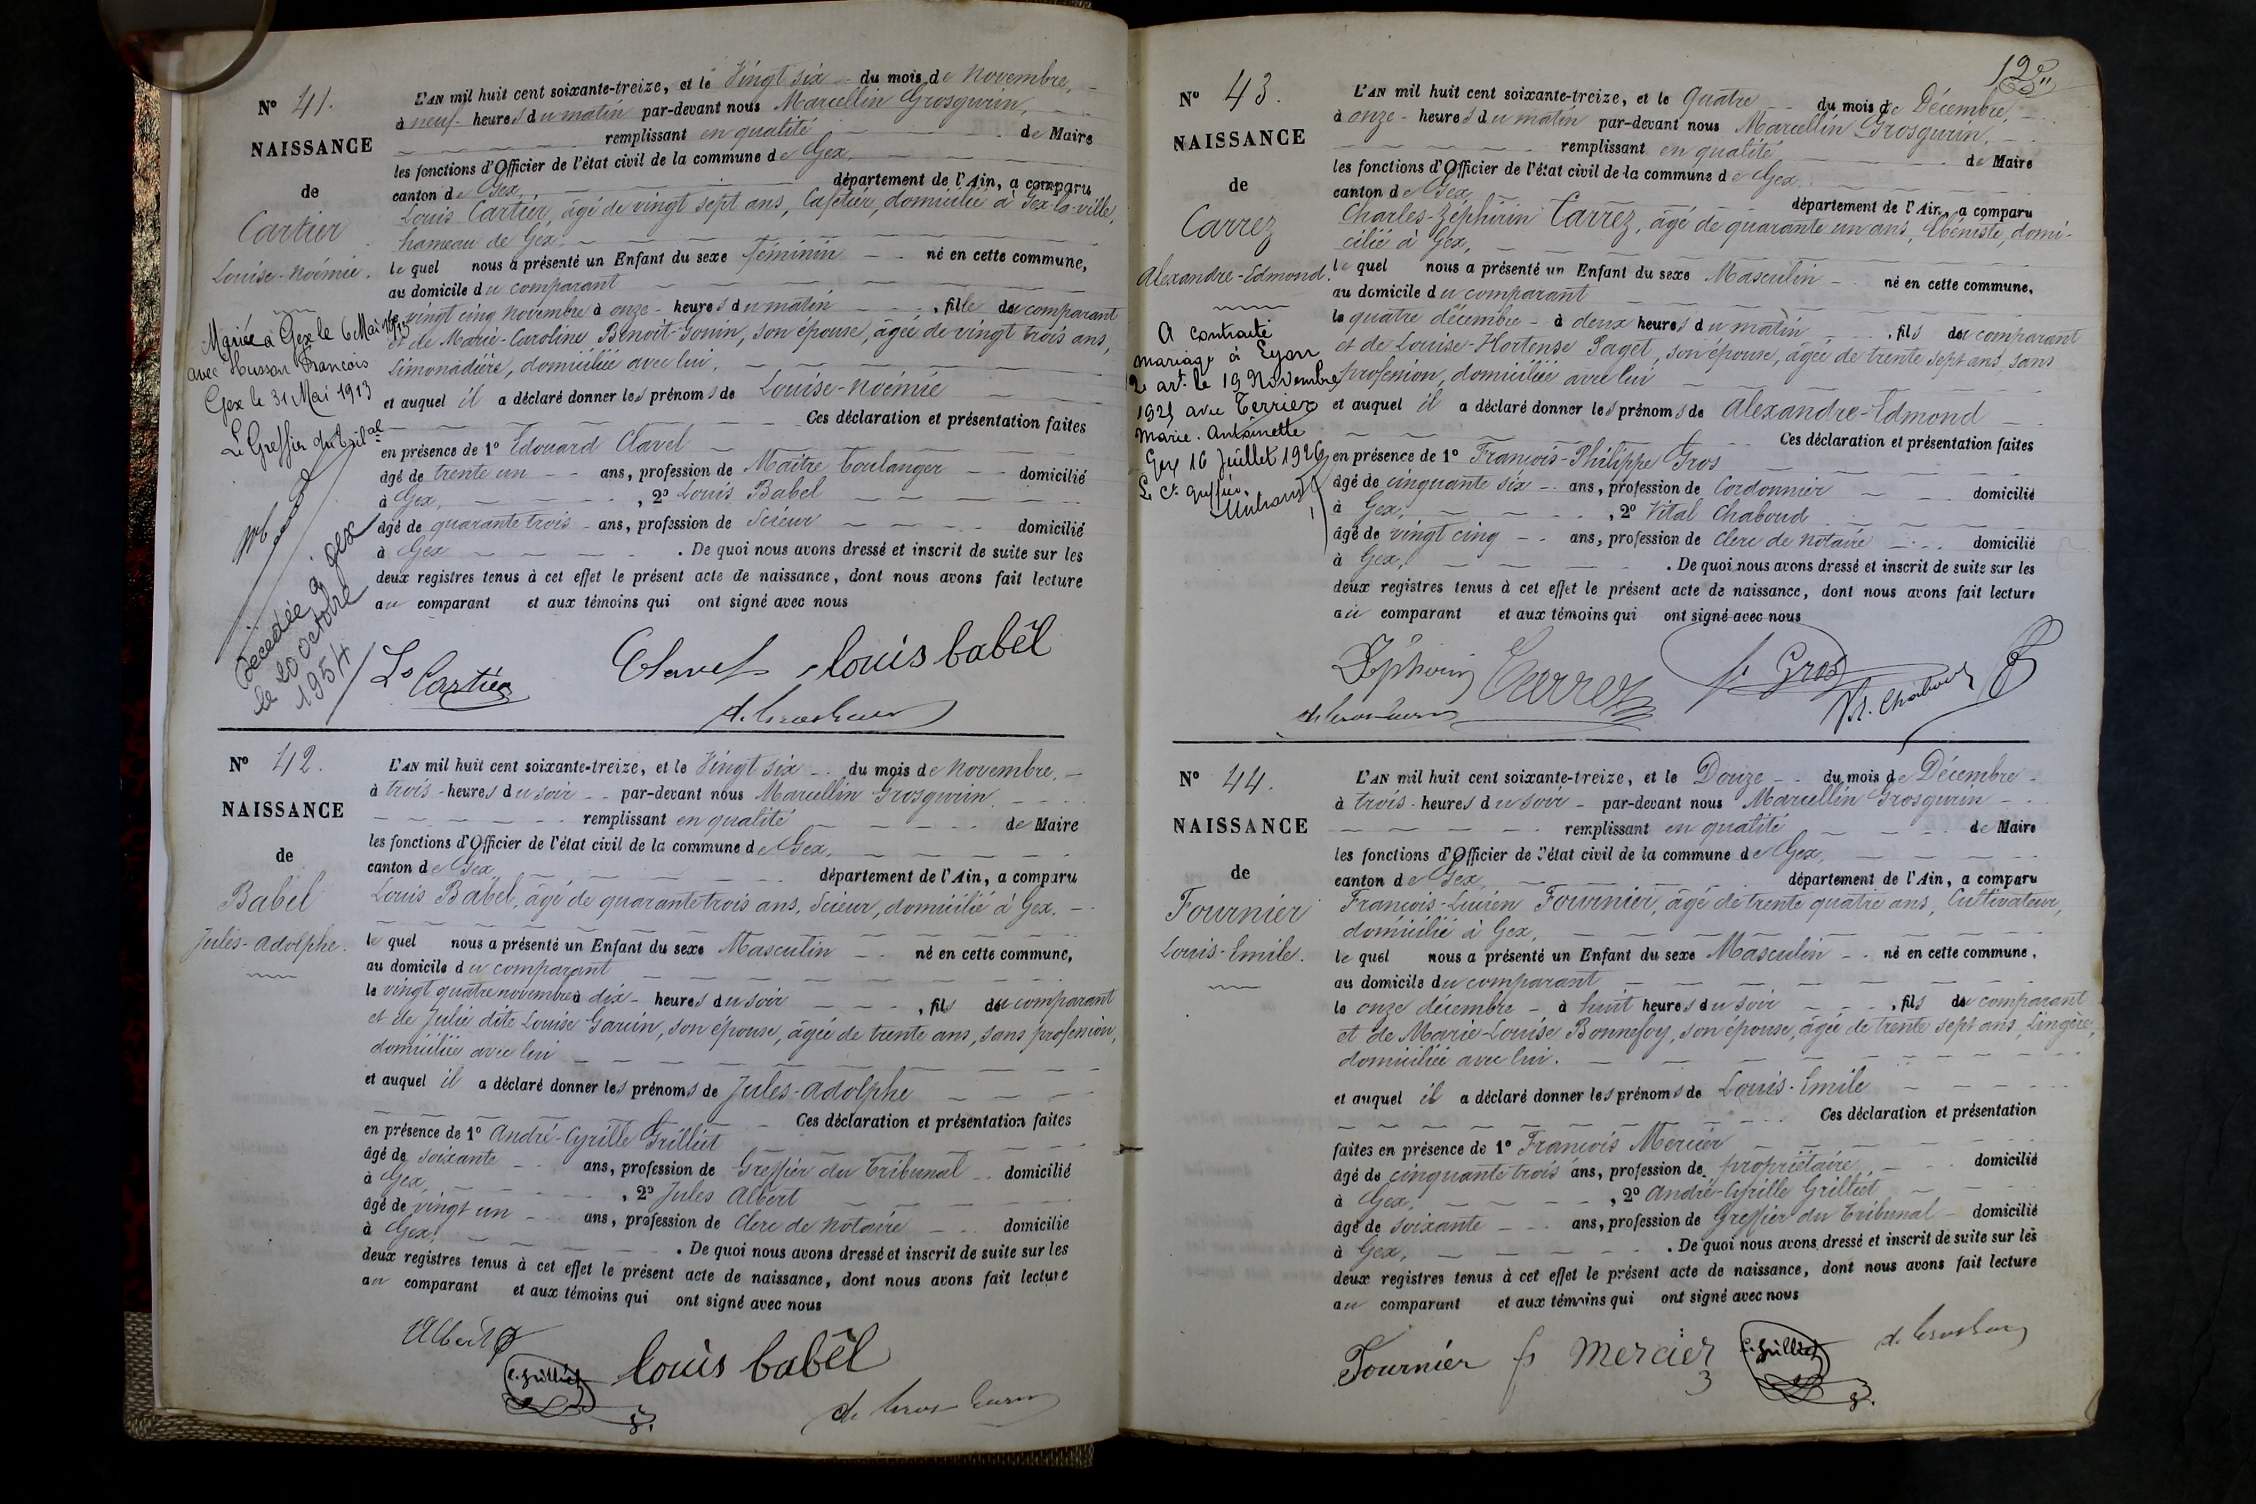 N° 41.
NAISSANCE
de
Cartier
Louise-Noémie.
Mariée à Gex le 6 Mai 1913
avec Husson François
Gex le 31 Mai 1913
Le Greffier du Tribal
Décédée à Gex
le 20 octobre
1954
L'AN mil huit cent soixante-treize, et le Vingt six du mois de Novembre,
à neuf heures du matin par-devant nous Marcellin Grosgurin,
remplissant en qualité de Maire
les fonctions d'Officier de l'état civil de la commune de Gex,
canton de Gex, département de l'Ain, a comparu
Louis Cartier, âgé de vingt sept ans, Cafetier, domicilié à Gex-la-ville,
hameau de Gex,
le quel nous a présenté un Enfant du sexe féminin né en cette commune,
au domicile du comparant
le vingt cinq novembre à onze heures du matin, fille du comparant
et de Marie-Caroline Benoit-Gonin, son épouse, âgée de vingt trois ans,
Limonadière, domiciliée avec lui,
et auquel il a déclaré donner les prénoms de Louise-Noémie
Ces déclaration et présentation faites
en présence de 1° Edouard Clavel
âgé de trente un ans, profession de Maître boulanger domicilié
à Gex, 2° Louis Babel
âgé de quarante trois ans, profession de Scieur domicilié
à Gex . De quoi nous avons dressé et inscrit de suite sur les
deux registres tenus à cet effet le présent acte de naissance, dont nous avons fait lecture
au comparant et aux témoins qui ont signé avec nous
Ls Cartier Clavel Louis babêl
N° 42.
NAISSANCE
de
Babel
Jules-Adolphe.
L'AN mil huit cent soixante-treize, et le Vingt six du mois de Novembre,
à trois heures du soir par-devant nous Marcellin Grosgurin
remplissant en qualité de Maire
les fonctions d'Officier de l'état civil de la commune de Gex,
canton de Gex, département de l'Ain, a comparu
Louis Babel, âgé de quarante trois ans, Scieur, domicilié à Gex,
le quel nous a présenté un Enfant du sexe Masculin né en cette commune,
au domicile du comparant
le vingt quatre novembre à dix heures du soir, fils du comparant
et de Julie dite Louise Garcin, son épouse, âgée de trente ans, sans profession,
domiciliée avec lui
et auquel il a déclaré donner les prénoms de Jules-Adolphe
Ces déclaration et présentation faites
en présence de 1° André-Cyrille Grilliet
âgé de soixante ans, profession de Greffier du Tribunal domicilié
à Gex, 2° Jules Albert
âgé de vingt un ans, profession de Clerc de Notaire domicilié
à Gex, . De quoi nous avons dressé et inscrit de suite sur les
deux registres tenus à cet effet le présent acte de naissance, dont nous avons fait lecture
au comparant et aux témoins qui ont signé avec nous
Albert
C. Grilliet Louis babêl
N° 43.
NAISSANCE
de
Carrez
Alexandre-Edmond.
A contracté
mariage à Lyon
2e art. le 19 Novembre
1921 avec Terrier
Marie-Antoinette
Gex 16 Juillet 1926
L'AN mil huit cent soixante-treize, et le Quatre du mois de Décembre,
à onze heures du matin par-devant nous Marcellin Grosgurin,
remplissant en qualité de Maire
les fonctions d'Officier de l'état civil de la commune de Gex
canton de Gex, département de l'Ain, a comparu
Charles-Zéphirin Carrez, âgé de quarante un ans, Ebéniste, domi-
cilié à Gex,
le quel nous a présenté un Enfant du sexe Masculin né en cette commune,
au domicile du comparant
le quatre décembre à deux heures du matin, fils du comparant
et de Louise-Hortense Paget, son épouse, âgée de trente sept ans, sans
profession, domiciliée avec lui
et auquel il a déclaré donner les prénoms de Alexandre-Edmond
Ces déclaration et présentation faites
en présence de 1° François-Philippe Gros
âgé de cinquante six ans, profession de Cordonnier domicilié
à Gex, 2° Vital Chaboud
âgé de vingt cinq ans, profession de Clerc de Notaire domicilié
à Gex, . De quoi nous avons dressé et inscrit de suite sur les
deux registres tenus à cet effet le présent acte de naissance, dont nous avons fait lecture
au comparant et aux témoins qui ont signé avec nous
Zéphirin Carrez Gros Vl. Chaboud
N° 44.
NAISSANCE
de
Fournier
Louis-Emile.
L'AN mil huit cent soixante-treize, et le Douze du mois de Décembre
à trois heures du soir par-devant nous Marcellin Grosgurin
remplissant en qualité de Maire
les fonctions d'Officier de l'état civil de la commune de Gex,
canton de Gex département de l'Ain, a comparu
François-Lucien Fournier, âgé de trente quatre ans, Cultivateur,
domicilié à Gex,
le quel nous a présenté un Enfant du sexe Masculin né en cette commune,
au domicile du comparant
le onze décembre à huit heures du soir, fils du comparant
et de Marie-Louise Bonnefoy, son épouse, âgée de trente sept ans, Lingère,
domiciliée avec lui.
et auquel il a déclaré donner les prénoms de Louis-Emile
Ces déclaration et présentation
faites en présence de 1° François Mercier
âgé de cinquante trois ans, profession de propriétaire, domicilié
à Gex, 2° André-Cyrille Grilliet
âgé de soixante ans, profession de Greffier du Tribunal domicilié
à Gex, . De quoi nous avons dressé et inscrit de suite sur les
deux registres tenus à cet effet le présent acte de naissance, dont nous avons fait lecture
au comparant et aux témoins qui ont signé avec nous
Fournier fs Mercier C. Grilliet